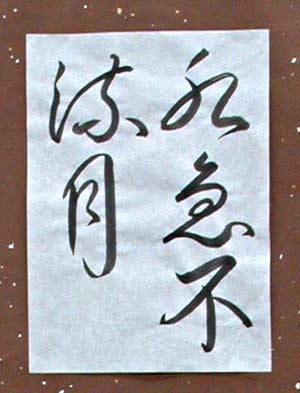 水急不
流月